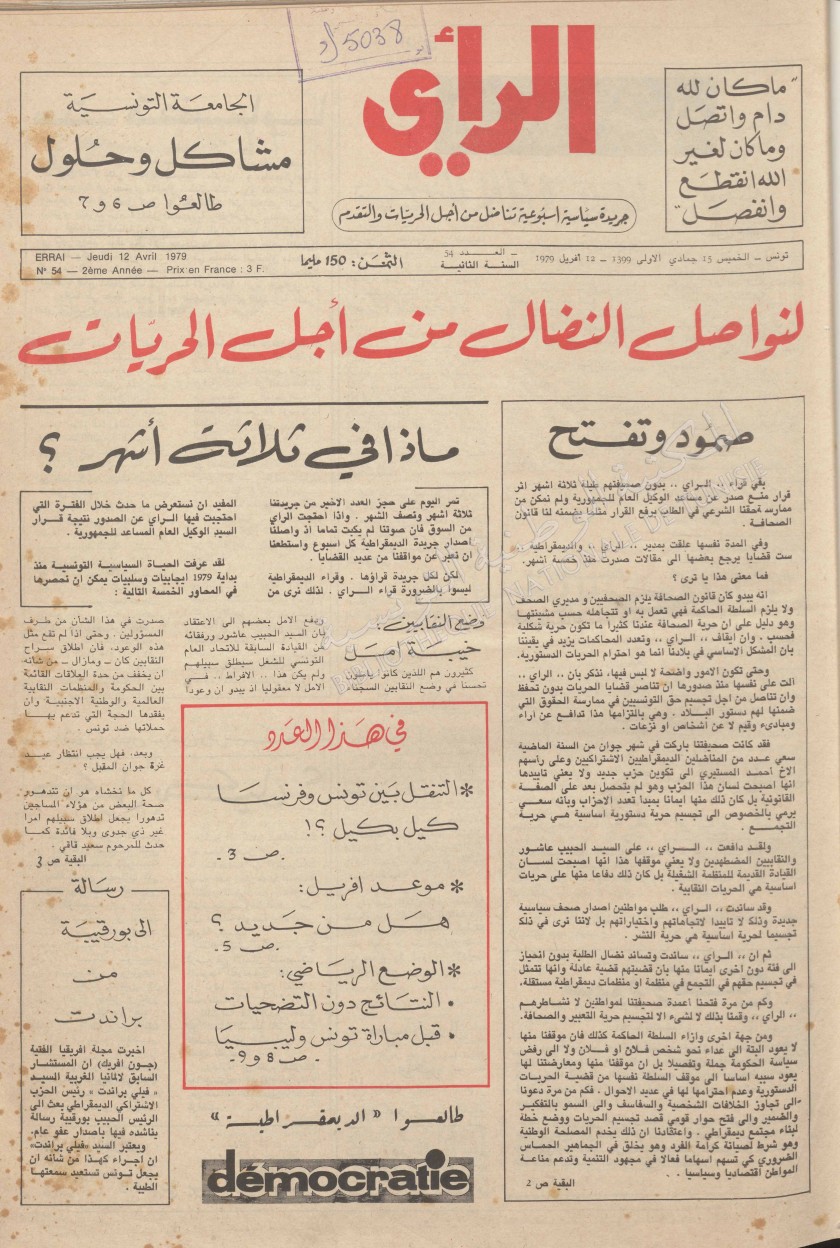 5038
الرأي
جريدة سياسية اسبوعية تناضل من أجل الحريات والتقدم
"ما كان لله
دام واتصل
وما كان لغير
الله انقطع
وانفصل"
الجامعة التونسية
مشاكل وحلول
طالعوا ص 6 و 7
تونس - الخميس 15 جمادي الاولى 1399 - 12 افريل 1979
- العدد 54
السنة الثانية
الثمن : 150 مليما
ERRAI — Jeudi 12 Avril 1979
N° 54 — 2ème Année — Prix en France : 3 F.
لنواصل النضال من أجل الحريات
صمود وتفتح
بقي قراء ،، الراي ،، بدون صحيفتهم طيلة ثلاثة اشهر اثر
قرار منع صدر عن مساعد الوكيل العام للجمهورية ولم تمكن من
ممارسة حقنا الشرعي في الطلب برفع القرار مثلما يضمنه لنا قانون
الصحافة .
وفي المدة نفسها علقت بمدير ،، الراي ،، والديمقراطية
ست قضايا يرجع بعضها الى مقالات صدرت منذ خمسة اشهر.
فما معنى هذا يا ترى ؟
انه يبدو كان قانون الصحافة يلزم الصحفيين و مديري الصحف
ولا يلزم السلطة الحاكمة فهي تعمل به او تتجاهله حسب مشيئتها
وهو دليل على ان حرية الصحافة عندنا كثيرا ما تكون حرية شكلية
فحسب . وان ايقاف ،، الراي ،، وتعدد المحاكمات يزيد في يقيننا
بان المشكل الاساسي في بلادنا انما هو احترام الحريات الدستورية.
وحتى تكون الامور واضحة لا لبس فيها، نذكر بأن ،، الراي ،،
آلت على نفسها منذ صدورها ان تناصر قضايا الحريات بدون تحفظ
وان تناضل من اجل تجسيم حق التونسيين في ممارسة الحقوق التي
ضمنها لهم دستور البلاد . وهي بالتزامها هذا تدافع عن آراء
ومبادىء وقيم لا عن اشخاص او نزعات .
فقد كانت صحيفتنا باركت في شهر جوان من السنة الماضية
سعي عدد من المناضلين الديمقراطيين الاشتراكيين وعلى رأسهم
الاخ احمد المستيري الى تكوين حزب جديد ولا يعني تاييدها
انها اصبحت لسان هذا الحزب وهو لم يتحصل بعد على الصفة
القانونية بل كان ذلك منها ايمانا بمبدا تعدد الاحزاب وبانه سعي
يرمي بالخصوص الى تجسيم حرية دستورية اساسية هي حرية
التجمع .
ولقد دافعت ،، الراي ،، على السيد الحبيب عاشور
والنقابيين المضطهدين ولا يعني موقفها هذا انها اصبحت لسان
القيادة القديمة للمنظمة الشغيلة بل كان ذلك دفاعا منها على حريات
اساسية هي الحريات النقابية .
وقد ساندت ،، الراي ،، طلب مواطنين اصدار صحف سياسية
جديدة وذلك لا تأييدا لاتجاهاتهم واختياراتهم بل لاننا نرى في ذلك
تجسيما لحرية اساسية هي حرية النشر .
ثم ان ،، الراي ،، ساندت وتساند نضال الطلبة بدون انحياز
الى فئة دون أخرى ايمانا منها بأن قضيتهم قضية عادلة وانها تتمثل
في تجسيم حقهم في التجمع في منظمة او منظمات ديمقراطية مستقلة.
وكم من مرة فتحنا اعمدة صحيفتنا لمواطنين لا نشاطرهم
،، الراي ،، وقمنا بذلك لا لشيء الا لتجسيم حرية التعبير والصحافة.
ومن جهة اخرى وازاء السلطة الحاكمة كذلك فان موقفنا منها
لا يعود البتة الى عداء نحو شخص فلان او فلان ولا الى رفض
سياسة الحكومة جملة وتفصيلا بل ان موقفنا منها ومعارضتنا لها
يعود سببه اساسا الى موقف السلطة نفسها من قضية الحريات
الدستورية وعدم احترامها لها في عديد الاحوال . فكم من مرة دعونا
الى تجاوز الخلافات الشخصية والسفاسف والى السمو بالتفكير
والضمير والى فتح حوار قومي قصد تجسيم الحريات ووضع خطة
لبناء مجتمع ديمقراطي . واعتقادنا ان ذلك يخدم المصلحة الوطنية
وهو شرط لصيانة كرامة الفرد وهو يخلق في الجماهير الحماس
الضروري كي تسهم اسهاما فعالا في مجهود التنمية وتدعم مناعة
المواطن اقتصاديا وسياسيا . .
البقية ص 2
ماذا في ثلاثة أشهر ؟
تمر اليوم على حجز العدد الاخير من جريدتنا
ثلاثة أشهر ونصف الشهر . واذا احتجبت الراي
من السوق فان صوتنا لم يكبت تماما اذ واصلنا
اصدار جريدة الديمقراطية كل اسبوع واستطعنا
ان نعبر عن مواقفنا من عديد القضايا .
لكن لكل جريدة قراؤها . وقراء الديمقراطية
ليسوا بالضرورة قراء الراي . لذلك نرى من
المفيد ان نستعرض ما حدث خلال الفترة التي
احتجبت فيها الراي عن الصدور نتيجة قرار
السيد الوكيل العام المساعد للجمهورية .
لقد عرفت الحياة السياسية التونسية منذ
بداية 1979 ايجابيات وسلبيات يمكن ان نحصرها
في المحاور الخمسة التالية :
وضع النقابيين :
خيبة امل
كثيرون هم اللذين كانوا يأملون
تحسنا في وضع النقابيين السجناء
ويدفع الامل بعضهم الى الاعتقاد
بان السيد الحبيب عاشور ورفقائه
من القيادة السابقة للاتحاد العام
التونسي للشغل سيطلق سبيلهم
ولم يكن هذا .. الافراط .. في
الامل لا معقوليا اذ يبدو ان وعودا
صدرت في هذا الشأن من طرف
المسؤولين . وحتى اذا لم تقع مثل
هذه الوعود، فان اطلاق سراح
النقابيين كان - ومازال - من شانه
ان يخفف من حدة العلاقات القائمة
بين الحكومة والمنظمات النقابية
العالمية والوطنية الاجنبية وان
يفقدها الحجة التي تدعم بها
حملاتها ضد تونس .
وبعد، فهل يجب انتظار عيد
غرة جوان المقبل ؟
كل ما نخشاه هو ان تتدهور
صحة البعض من هؤلاء المساجين
تدهورا يجعل اطلاق سبيلهم امرا
غير ذي جدوى وبلا فائدة كما
حدث للمرحوم سعيد قاقي .
البقية ص 3
في هذا العدد
* التنقل بين تونس وفرنسا
كيل بكيل ؟!
ص 3 .
* موعد افريل :
هل من جديد ؟
ص 5 .
* الوضع الرياضي :
• النتائج دون التضحيات
• قبل مباراة تونس وليبيا
ص 8 و 9 .
طالعوا « الديمقراطية »
démocratie
رسالة
الى بورقيبة
من
براندت
اخبرت مجلة افريقيا الفتية
(جون افريك) ان المستشار
السابق لالمانيا الغربية السيد
« فيلي براندت » رئيس الحزب
الاشتراكي الديمقراطي بعث الى
الرئيس الحبيب بورقيبة رسالة
يناشده فيها باصدار عفو عام.
ويعتبر السيد «فيلي براندت»
ان اجراء كهذا من شانه ان
يجعل تونس تستعيد سمعتها
الطيبة .